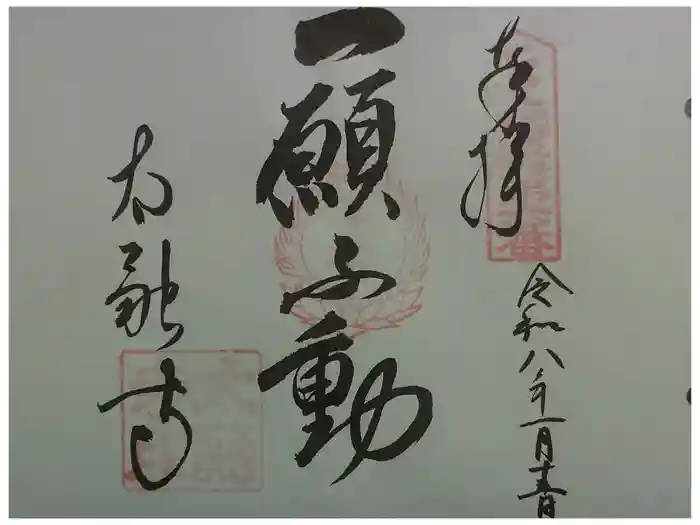 奉拝
令和八年一月十五日
一願不動
太融寺